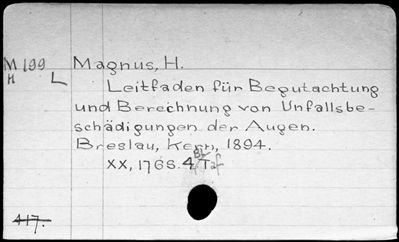 M 199 Magnus, H.
H L
Leitfaden für Begutachtung
und Berechnung von Unfallsbe-
schädigungen der Augen.
Breslau, Kern, 1894.
XX, 176S. 4 Bl. Taf
417.